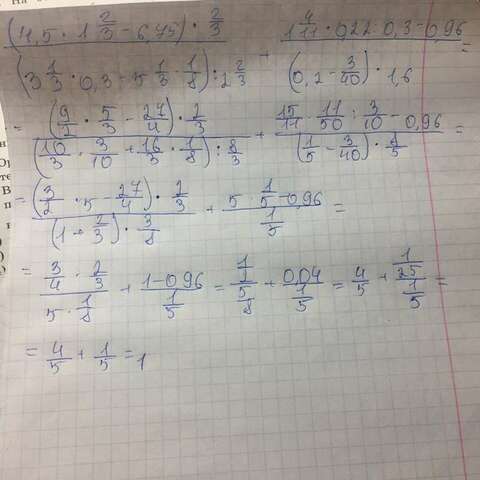 (4,5 · 1 2/3 - 6,75) · 2/3 / (3 1/3 · 0,3 - 5 1/3 · 1/8) : 2 2/3 + 1 4/11 · 0,22 : 0,3 - 0,96 / (0,2 - 3/40) · 1,6 =
= (9/2 · 5/3 - 27/4) · 2/3 / (10/3 · 3/10 + 16/3 · 1/8) : 8/3 + 15/11 · 11/50 : 3/10 - 0,96 / (1/5 - 3/40) · 8/5 =
= (3/2 · 5 - 27/4) · 2/3 / (1 + 2/3) · 3/8 + 5 · 1/5 - 0,96 / 1/5 =
= 3/4 · 2/3 / 5 · 1/8 + 1 - 0,96 / 1/5 = 1/2 / 5/8 + 0,04 / 1/5 = 4/5 + 1/25 / 1/5 =
= 4/5 + 1/5 = 1